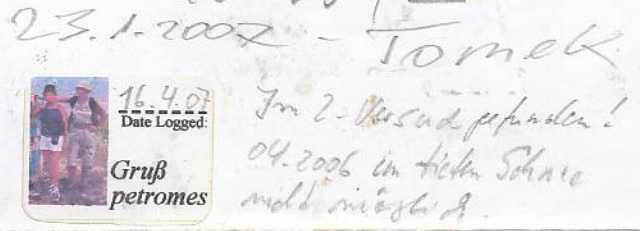 23.1.2007 - Tomek
16.4.07
Date Logged:
Gruß
petromes
Im 2. Versuch gefunden!
04.2006 im tiefen Schnee
nicht möglich.